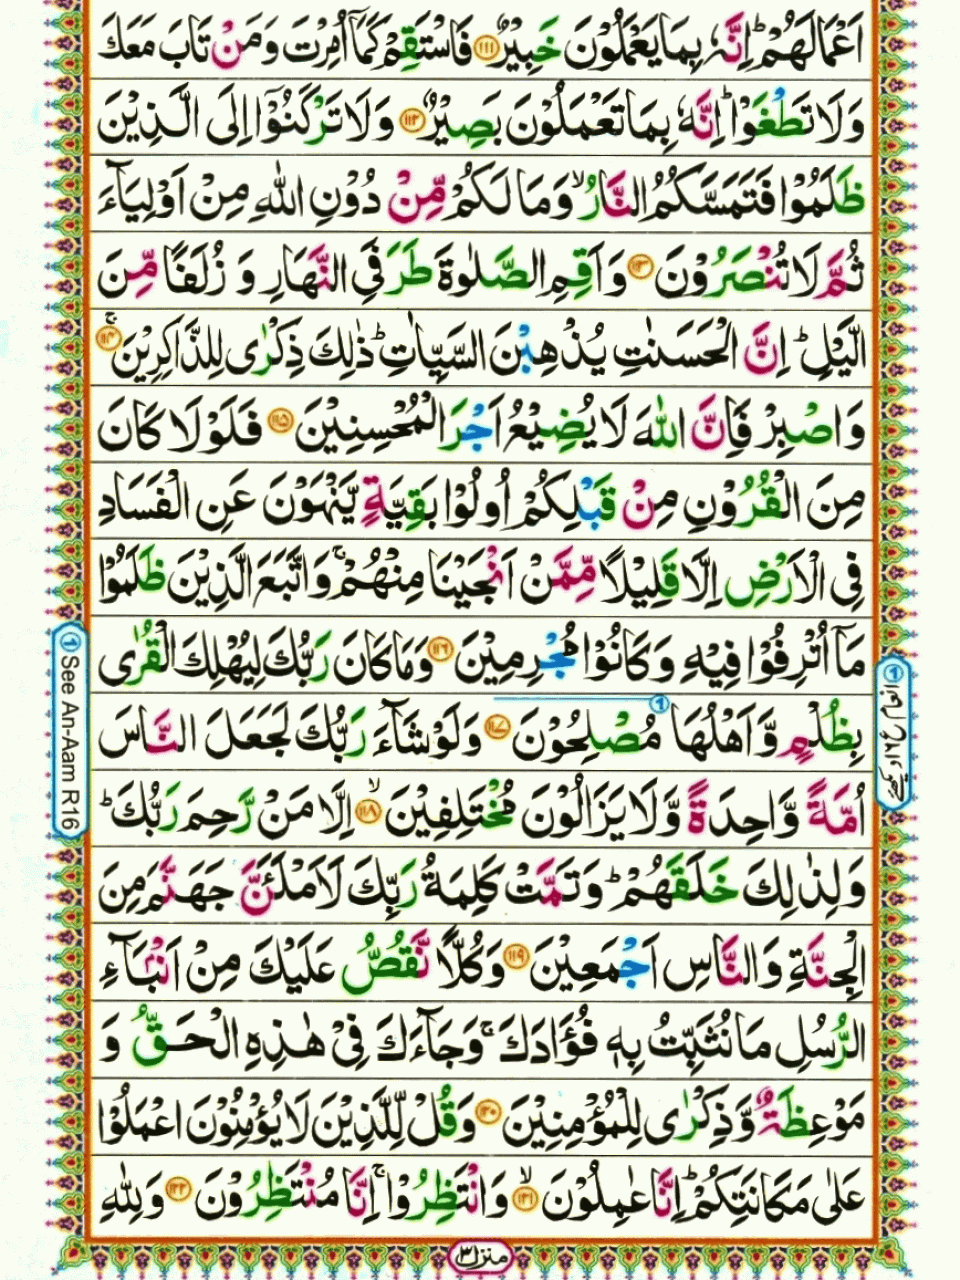 اَعْمَالَهُمْ ؕ اِنَّهٗ بِمَا يَعْمَلُوْنَ خَبِيْرٌ ۝۱۱۱ فَاسْتَقِمْ كَمَاۤ اُمِرْتَ وَ مَنْ تَابَ مَعَكَ
وَلَا تَطْغَوْا ؕ اِنَّهٗ بِمَا تَعْمَلُوْنَ بَصِيْرٌ ۝۱۱۲ وَلَا تَرْكَنُوْۤا اِلَى الَّذِيْنَ
ظَلَمُوْا فَتَمَسَّكُمُ النَّارُ ۙ وَمَا لَكُمْ مِّنْ دُوْنِ اللّٰهِ مِنْ اَوْلِيَآءَ
ثُمَّ لَا تُنْصَرُوْنَ ۝۱۱۳ وَاَقِمِ الصَّلٰوةَ طَرَفَيِ النَّهَارِ وَ زُلَفًا مِّنَ
الَّيْلِ ؕ اِنَّ الْحَسَنٰتِ يُذْهِبْنَ السَّيِّاٰتِ ؕ ذٰلِكَ ذِكْرٰى لِلذَّاكِرِيْنَ ۚ ۝۱۱۴
وَاصْبِرْ فَاِنَّ اللّٰهَ لَا يُضِيْعُ اَجْرَ الْمُحْسِنِيْنَ ۝۱۱۵ فَلَوْلَا كَانَ
مِنَ الْقُرُوْنِ مِنْ قَبْلِكُمْ اُولُوْا بَقِيَّةٍ يَّنْهَوْنَ عَنِ الْفَسَادِ
فِى الْاَرْضِ اِلَّا قَلِيْلًا مِّمَّنْ اَنْجَيْنَا مِنْهُمْ ۚ وَاتَّبَعَ الَّذِيْنَ ظَلَمُوْا
مَاۤ اُتْرِفُوْا فِيْهِ وَكَانُوْا مُجْرِمِيْنَ ۝۱۱۶ وَمَا كَانَ رَبُّكَ لِيُهْلِكَ الْقُرٰى
بِظُلْمٍ وَّاَهْلُهَا مُصْلِحُوْنَ ۝۱۱۷ وَلَوْ شَآءَ رَبُّكَ لَجَعَلَ النَّاسَ
اُمَّةً وَّاحِدَةً وَّلَا يَزَالُوْنَ مُخْتَلِفِيْنَ ۙ ۝۱۱۸ اِلَّا مَنْ رَّحِمَ رَبُّكَ ؕ
وَلِذٰلِكَ خَلَقَهُمْ ؕ وَتَمَّتْ كَلِمَةُ رَبِّكَ لَاَمْلَئَنَّ جَهَنَّمَ مِنَ
الْجِنَّةِ وَالنَّاسِ اَجْمَعِيْنَ ۝۱۱۹ وَكُلًّا نَّقُصُّ عَلَيْكَ مِنْ اَنْۢبَآءِ
الرُّسُلِ مَا نُثَبِّتُ بِهٖ فُؤَادَكَ ۚ وَجَآءَكَ فِىْ هٰذِهِ الْحَقُّ وَ
مَوْعِظَةٌ وَّذِكْرٰى لِلْمُؤْمِنِيْنَ ۝۱۲۰ وَقُلْ لِّلَّذِيْنَ لَا يُؤْمِنُوْنَ اعْمَلُوْا
عَلٰى مَكَانَتِكُمْ ؕ اِنَّا عٰمِلُوْنَ ۙ ۝۱۲۱ وَانْتَظِرُوْا ۚ اِنَّا مُنْتَظِرُوْنَ ۝۱۲۲ وَلِلّٰهِ
منزل ۳
① See An-Aam R16
① انعام ع ۱۶ دیکھے